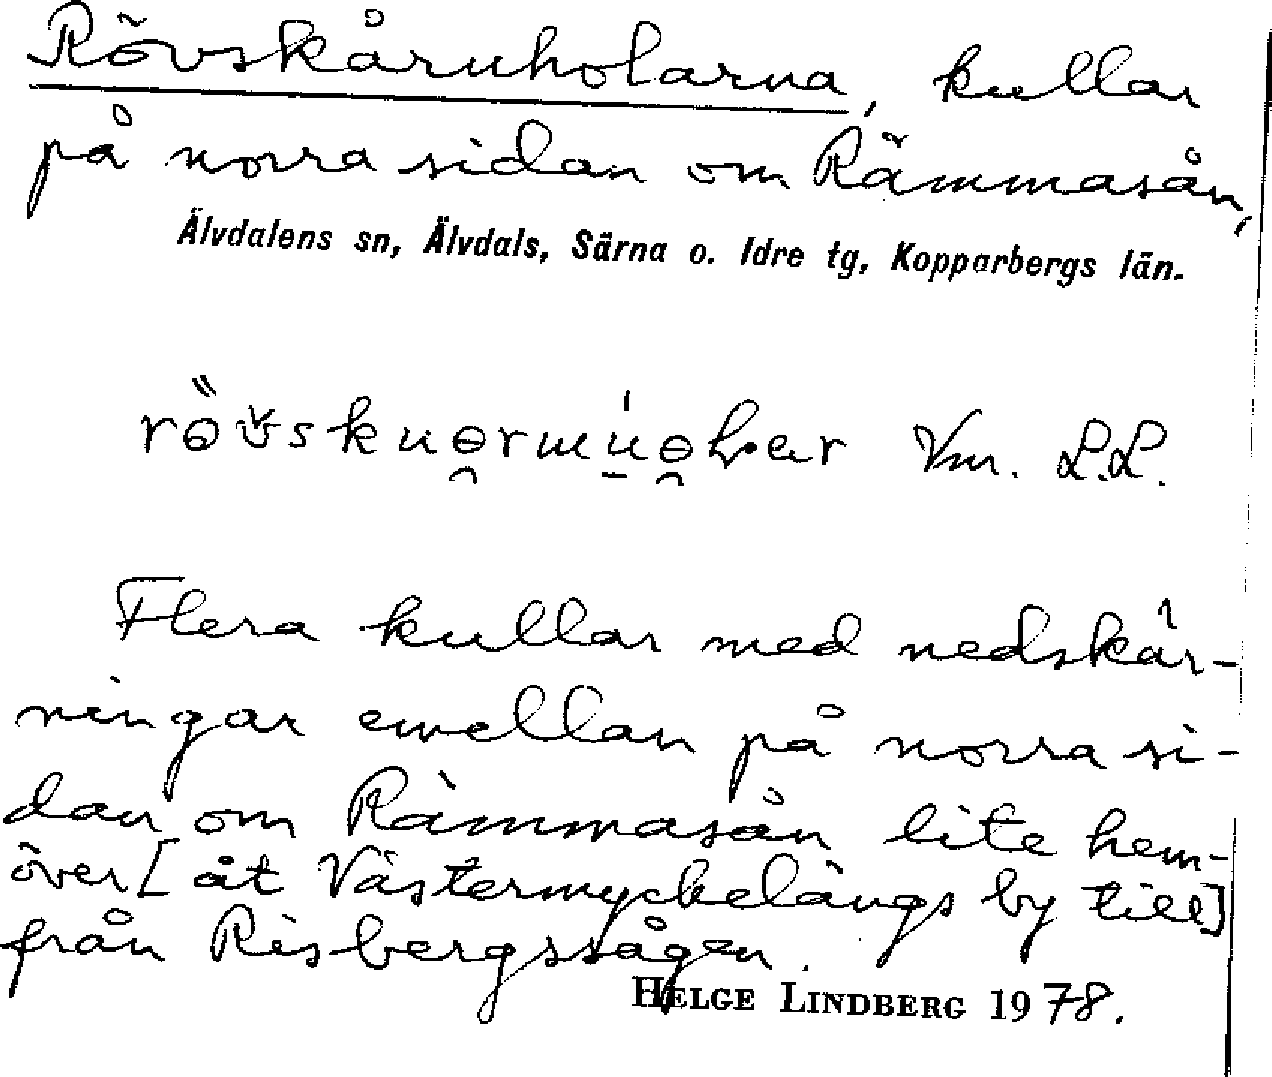 Rövskåruholarna, kullar
på norra sidan om Rämmasån,
Älvdalens sn, Älvdals, Särna o. Idre tg, Kopparbergs län.
Vm. L.L.
Flera kullar med nedskär-
ningar emellan på norra si-
dan om Rämmasån lite hem-
över [åt Västermyckelängs by till]
från Risbergssågen.
HELGE LINDBERG 1978.